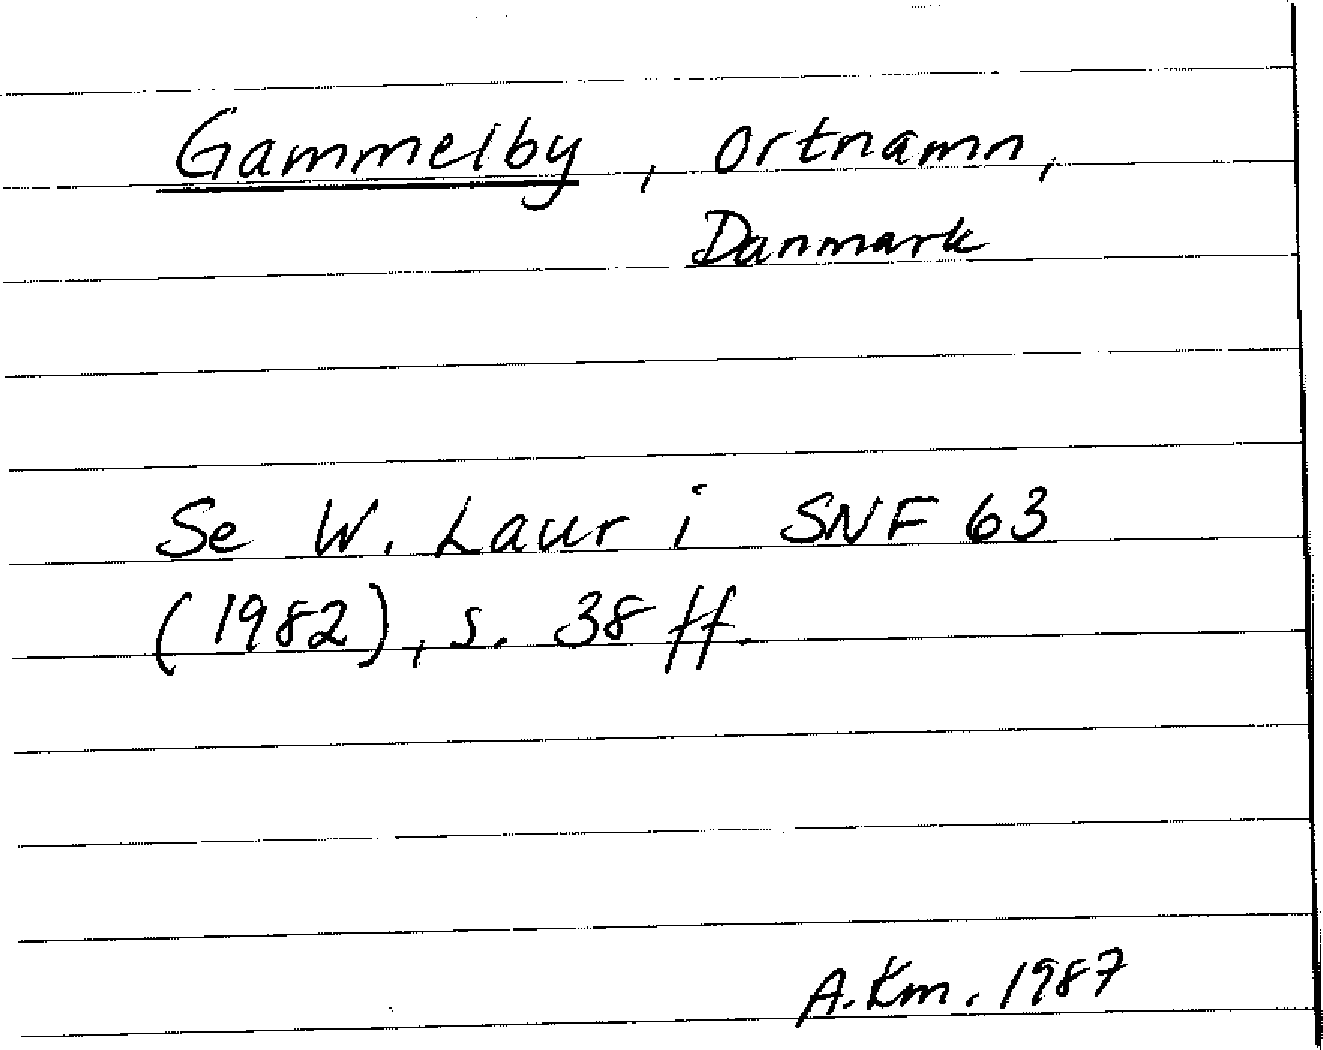 Gammelby, ortnamn,
Danmark
Se W. Laur i SNF 63
(1982), s. 38 ff.
A. Km. 1987